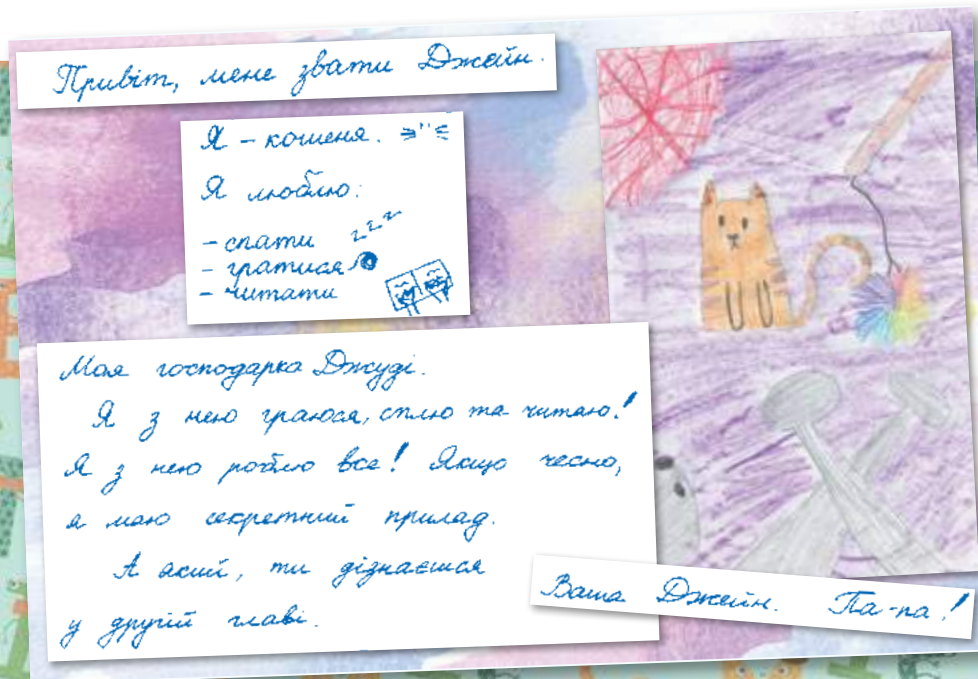 Привіт, мене звати Джейн.
Я – кошеня.
Я люблю:
– спати zzz
– гратися
– читати
Моя господарка Джуді.
Я з нею граюся, сплю та читаю!
Я з нею роблю все! Якщо чесно,
я маю секретний прилад.
А який, ти дізнаєшся
у другій главі.
Ваша Джейн. Па-па!